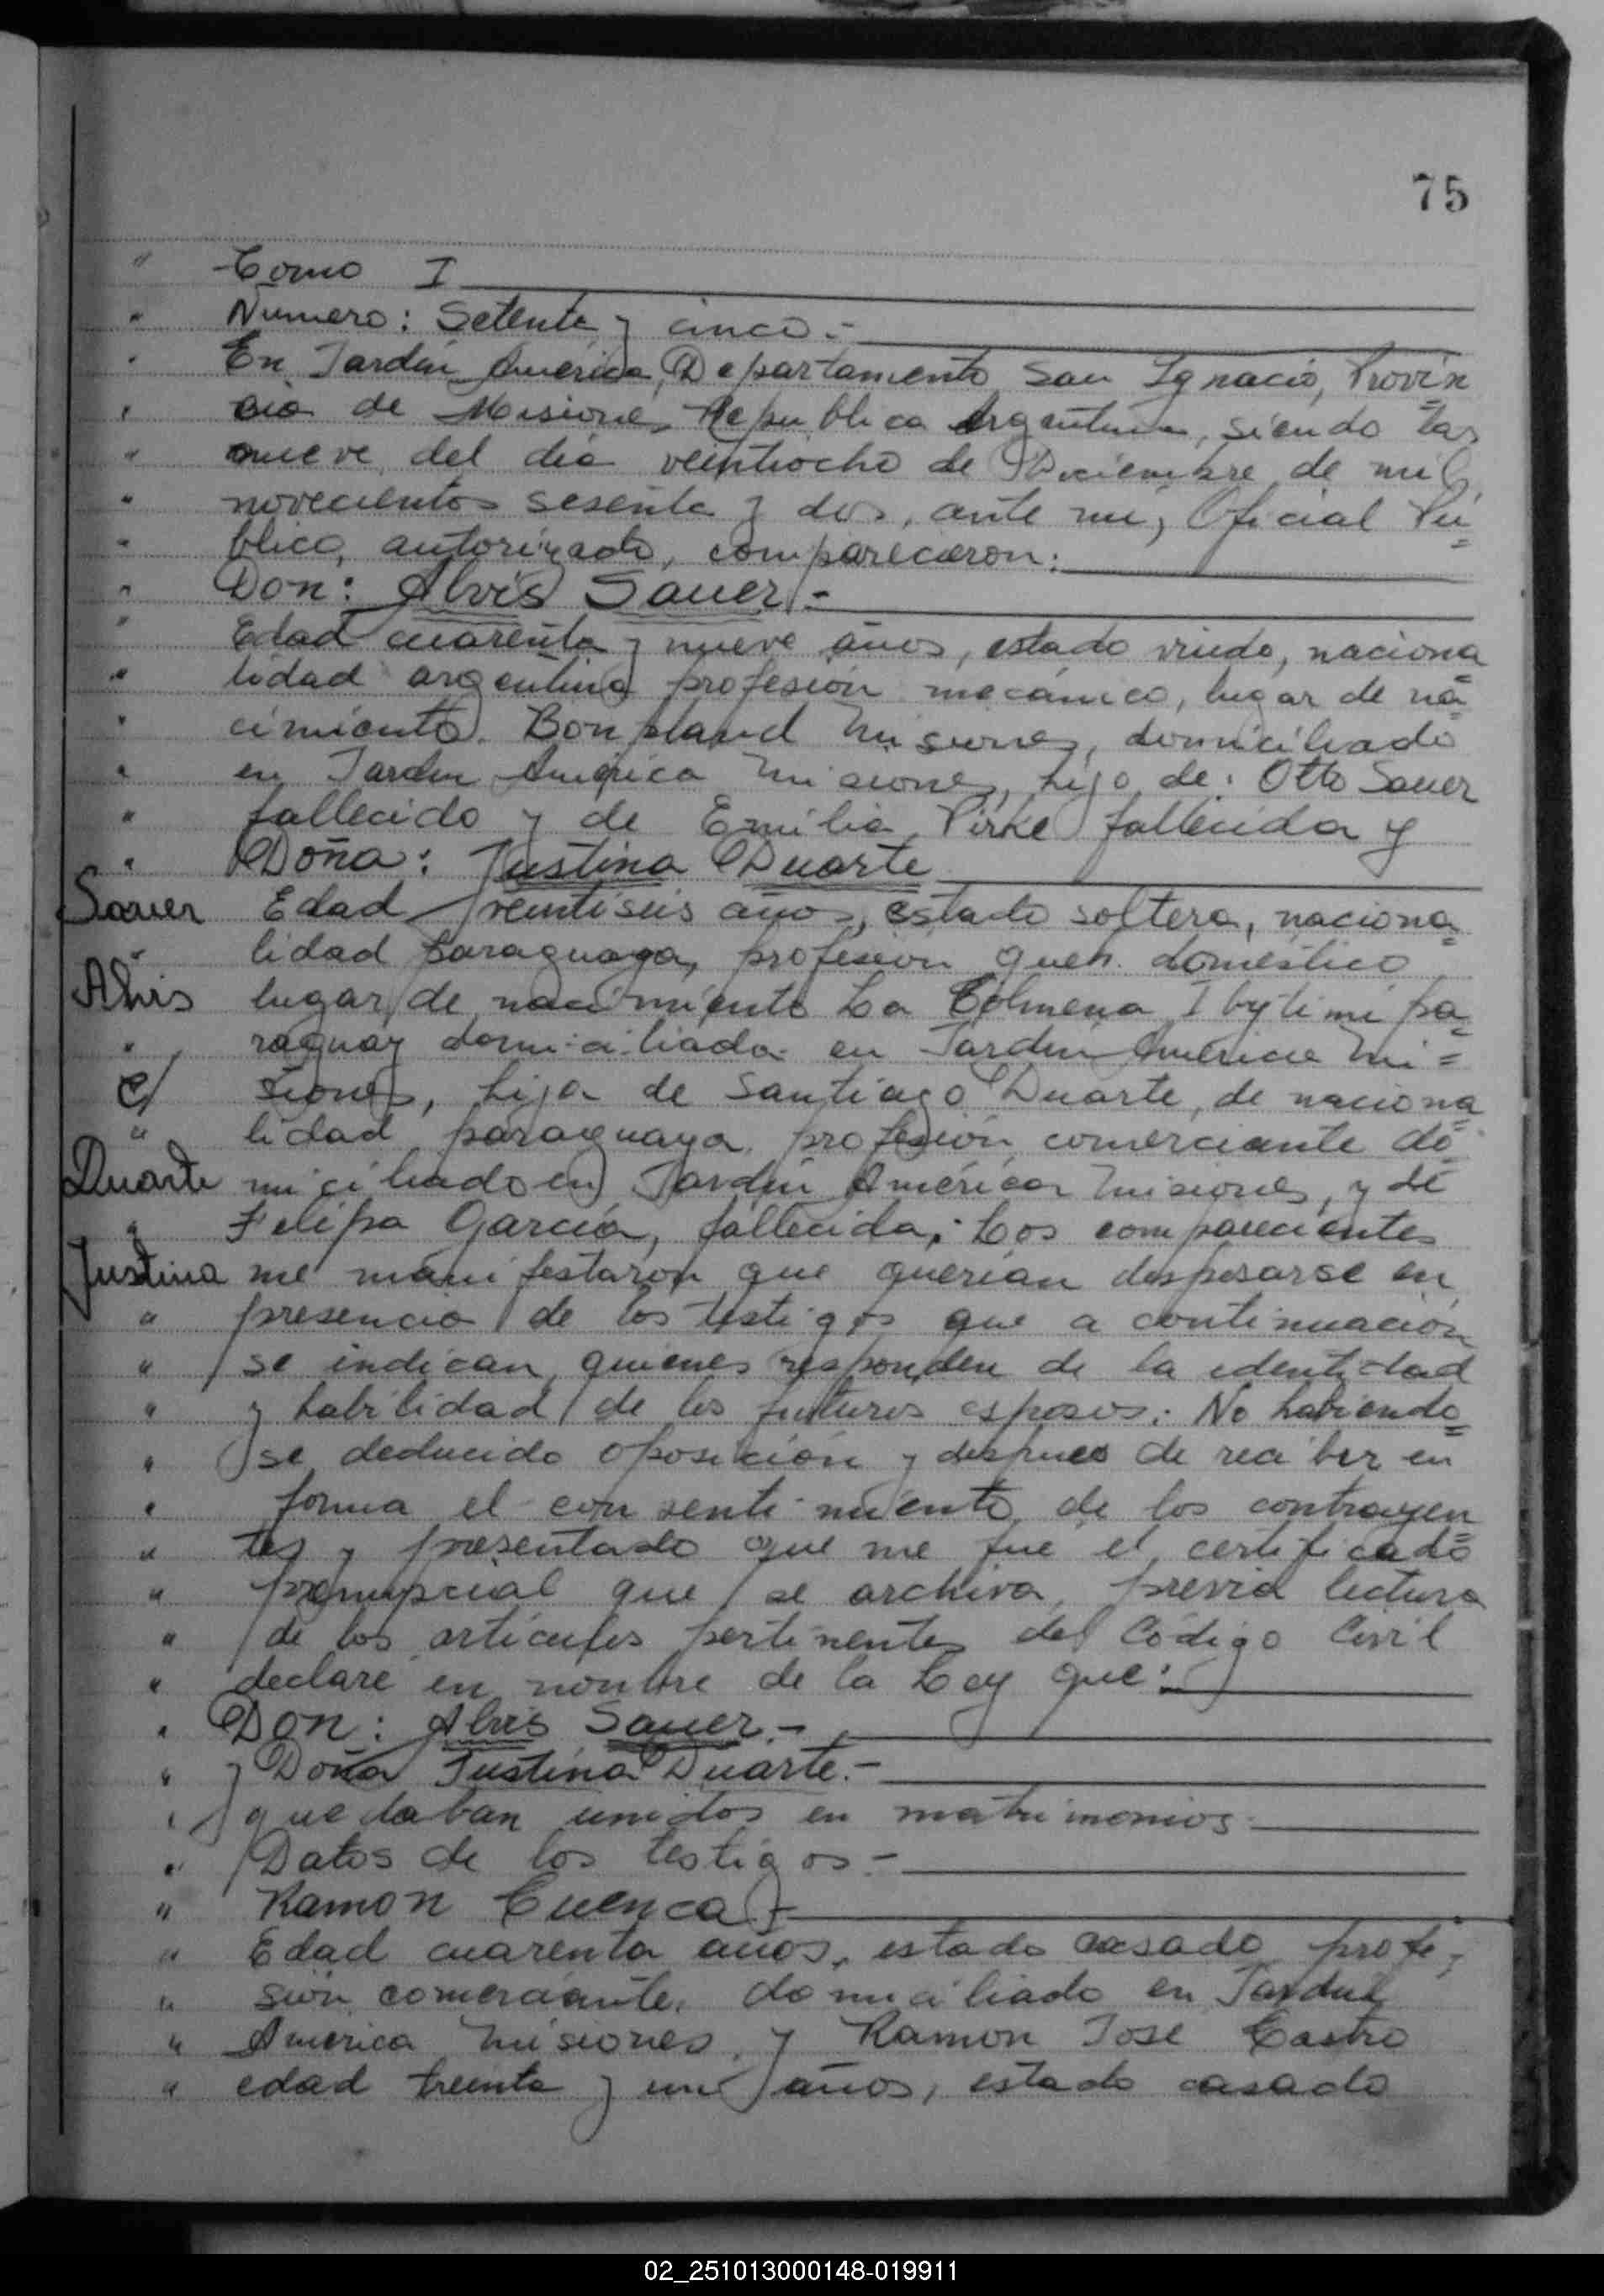 75
Tomo I
Numero: Setenta y cinco.-
En Jardín América, Departamento San Ignacio, Provin
cia de Misiones República Argentina, siendo las
nueve del día veintiocho de Diciembre de mil
novecientos sesenta y dos, ante mi, Oficial Pú=
blico, autorizado, comparecieron:
Don: Alvis Sauer.-
Edad cuarenta y nueve años, estado viudo, naciona
lidad argentina profesión mecánico, lugar de na
cimiento. Bonpland Misiones, domiciliado
en Jardin América Misiones, hijo de: Otto Sauer
fallecido y de Emilia Pirke fallecida y
Doña: Justina Duarte
Sauer Edad veintiseis años, estado soltera, naciona=
lidad paraguaya, profesión queh. doméstico
Alvis lugar de nacimiento La Colmena Ibytimi pa=
raguay domiciliada en Jardin América Mi=
c/ siones, hija de Santiago Duarte, de naciona
lidad paraguaya, profesión comerciante do
Duarte miciliado en Jardin América Misiones, y de
Felipa García, fallecida; Los comparecientes
Justina me manifestaron que querían desposarse en
presencia de los testigos que a continuación
se indican, quienes responden de la identidad
y habilidad de los futuros esposos. No habiendo=
se deducido oposición y despues de recibir en
forma el consentimiento de los contrayen
tes y presentado que me fue el certificado
prenupcial que se archiva, previa lectura
de los artículos pertinentes del Código Civil
declaré en nombre de la Ley que:
Don: Alvis Sauer.-
y Doña Justina Duarte.-
quedaban unidos en matrimonios.
Datos de los testigos.-
Ramon Cuenca
Edad cuarenta años, estado casado, profe=
sión comerciante, domiciliado en Jardin
América Misiones, y Ramon José Castro
edad treinta y un años, estado casado
02_251013000148-019911